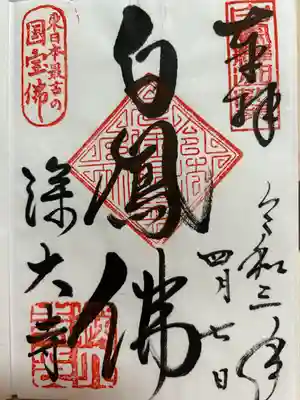 奉拝
令和三年
四月七日
白鳳佛
東日本最古の
国宝佛
深大寺